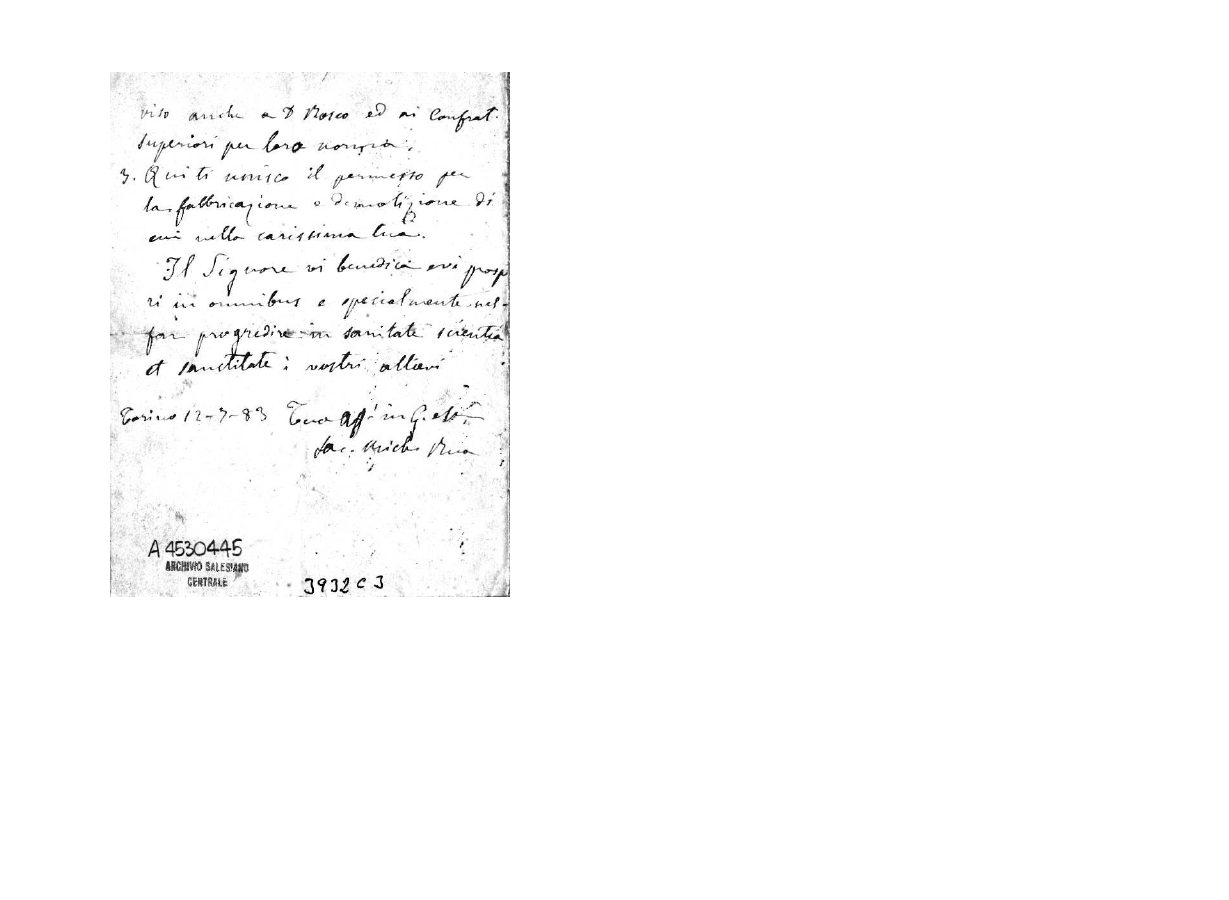 viso anche a D Bosco ed ai Confrat.
Superiori per loro norma.
3. Qui ti unisco il permesso per
la fabbricazione e demolizione di
cui nella carissima tua.
Il Signore vi benedica e vi prosp
ri in omnibus e specialmente nel
far progredire in sanitate scientia
et sanctitate i vostri allievi
Torino 12-7-83 Tuo aff. in G. e
Sac. Michele Rua
A 4530445
ARCHIVIO SALESIANO
CENTRALE
3932 C 3